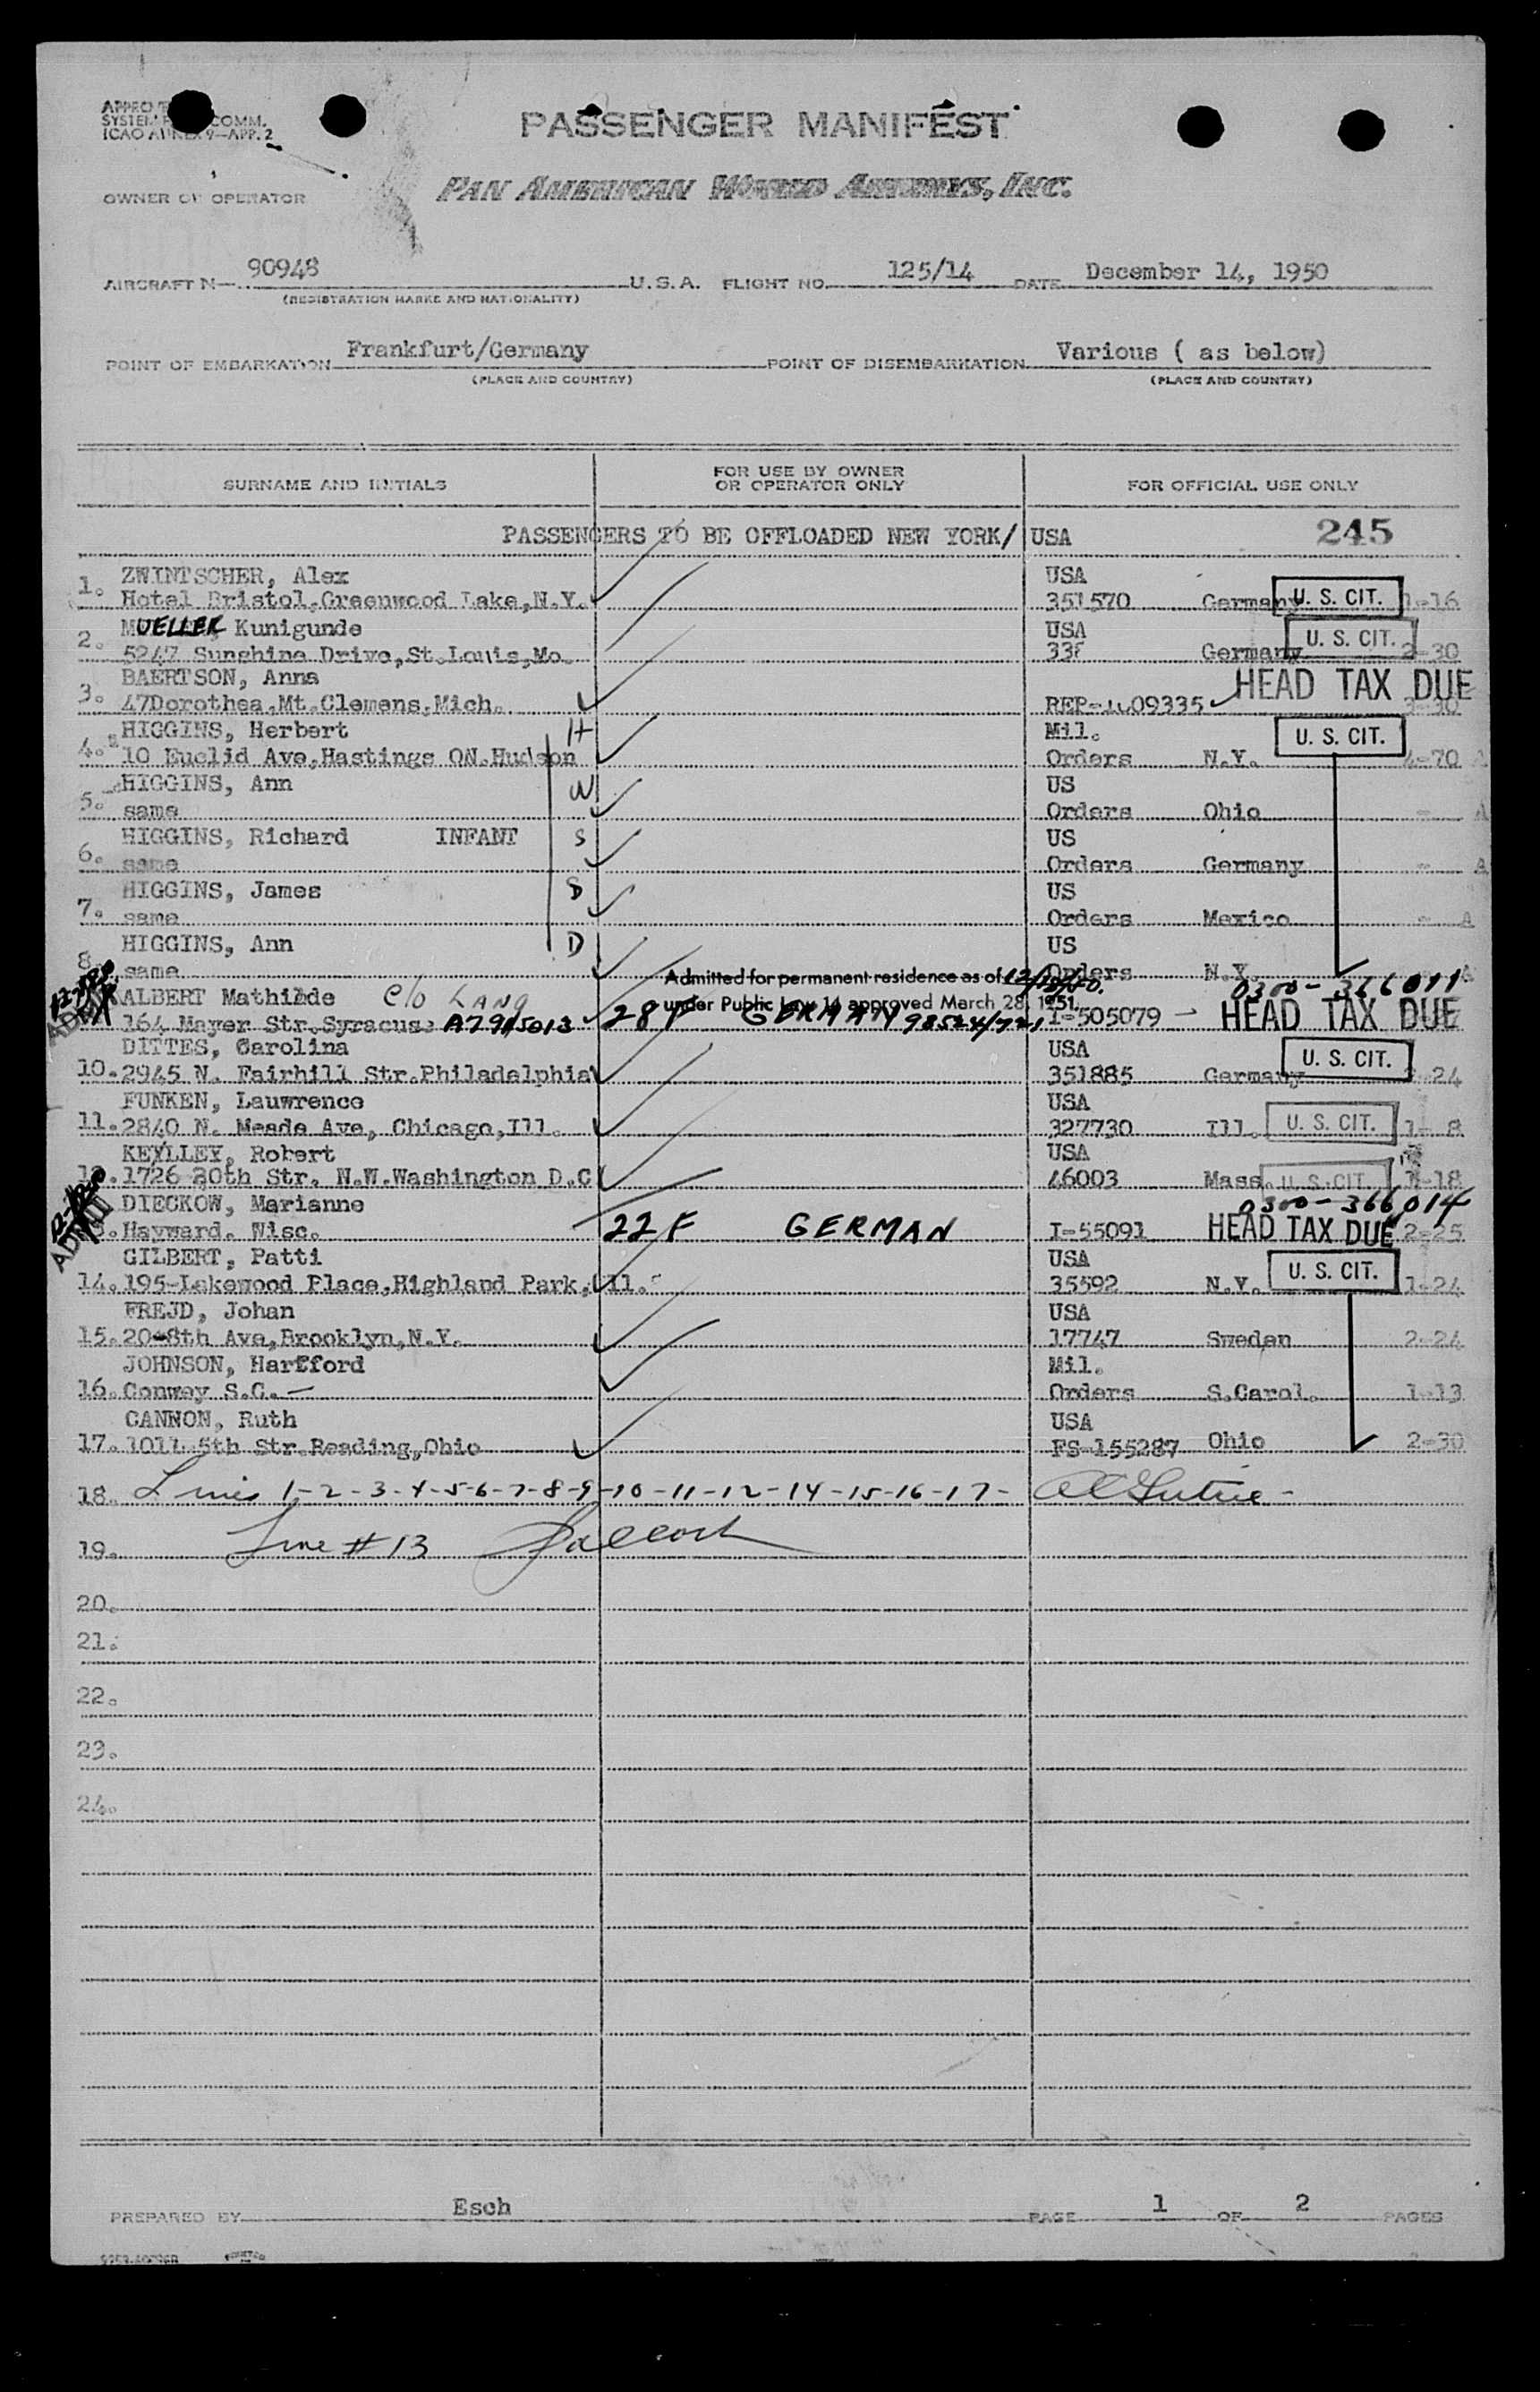 PASSENGER MANIFEST
ICAO ANNEX 9—APP. 2
OWNER OR OPERATOR
PAN AMERICAN WORLD AIRWAYS, INC.
AIRCRAFT N— 90948 U.S.A. FLIGHT NO. 125/14 DATE December 14, 1950
(REGISTRATION MARKS AND NATIONALITY)
POINT OF EMBARKATION Frankfurt/Germany POINT OF DISEMBARKATION Various ( as below)
(PLACE AND COUNTRY) (PLACE AND COUNTRY)
SURNAME AND INITIALS FOR USE BY OWNER OR OPERATOR ONLY FOR OFFICIAL USE ONLY
PASSENGERS TO BE OFFLOADED NEW YORK/ USA 245
ZWINTSCHER, Alex USA
1. Hotel Bristol,Greenwood Lake,N.Y. 351570 Germany U. S. CIT. 1-16
MUELLER Kunigunde USA
2. 5247 Sunshine Drive,St.Louis,Mo. 33 Germany U. S. CIT. 2-30
BAERTSON, Anna HEAD TAX DUE
3. 47Dorothea,Mt.Clemens,Mich. 09335 3-30
HIGGINS, Herbert H Mil. U. S. CIT.
4. 10 Euclid Ave,Hastings ON.Hudson Orders N.Y. 4-70 A
HIGGINS, Ann W US
5. same Orders Ohio - A
HIGGINS, Richard INFANT S US
6. same Orders Germany - A
HIGGINS, James S US
7. same Orders Mexico - A
HIGGINS, Ann D US
8. same Orders N.Y. - A
Admitted for permanent residence as of
under Public Law 14 approved March 28, 1951.
ALBERT Mathilde C/O LANG 0300-366011
164 Mayer Str.Syracuse A7915013 28F GERMANY I-505079 - HEAD TAX DUE
DITTES, Carolina USA
10. 2945 N. Fairhill Str.Philadelphia 351885 Germany U. S. CIT. -24
FUNKEN, Lauwrence USA
11. 2840 N. Meade Ave, Chicago,Ill. 327730 Ill. U. S. CIT. 1- 8
KEYLLEY, Robert USA
12. 1726 20th Str. N.W.Washington D.C 46003 Mass. U. S. CIT. 1-18
DIECKOW, Marianne 0300-366014
Hayward. Wisc. 22F GERMAN I-55091 HEAD TAX DUE 2-25
GILBERT, Patti USA
14. 195-Lakewood Place,Highland Park,Il. 35592 N.Y. U. S. CIT. 1-24
FREJD, Johan USA
15. 20-8th Ave,Brooklyn,N.Y. 17747 Sweden 2-24
JOHNSON, Hartford Mil.
16. Conway S.C. — Orders S.Carol. 1-13
CANNON, Ruth USA
17. 1011 5th Str.Reading,Ohio FS-155287 Ohio 2-30
18. Lines 1-2-3-4-5-6-7-8-9-10-11-12-14-15-16-17-
19. Line # 13
20.
21.
22.
23.
24.
PREPARED BY Esch PAGE 1 OF 2 PAGES